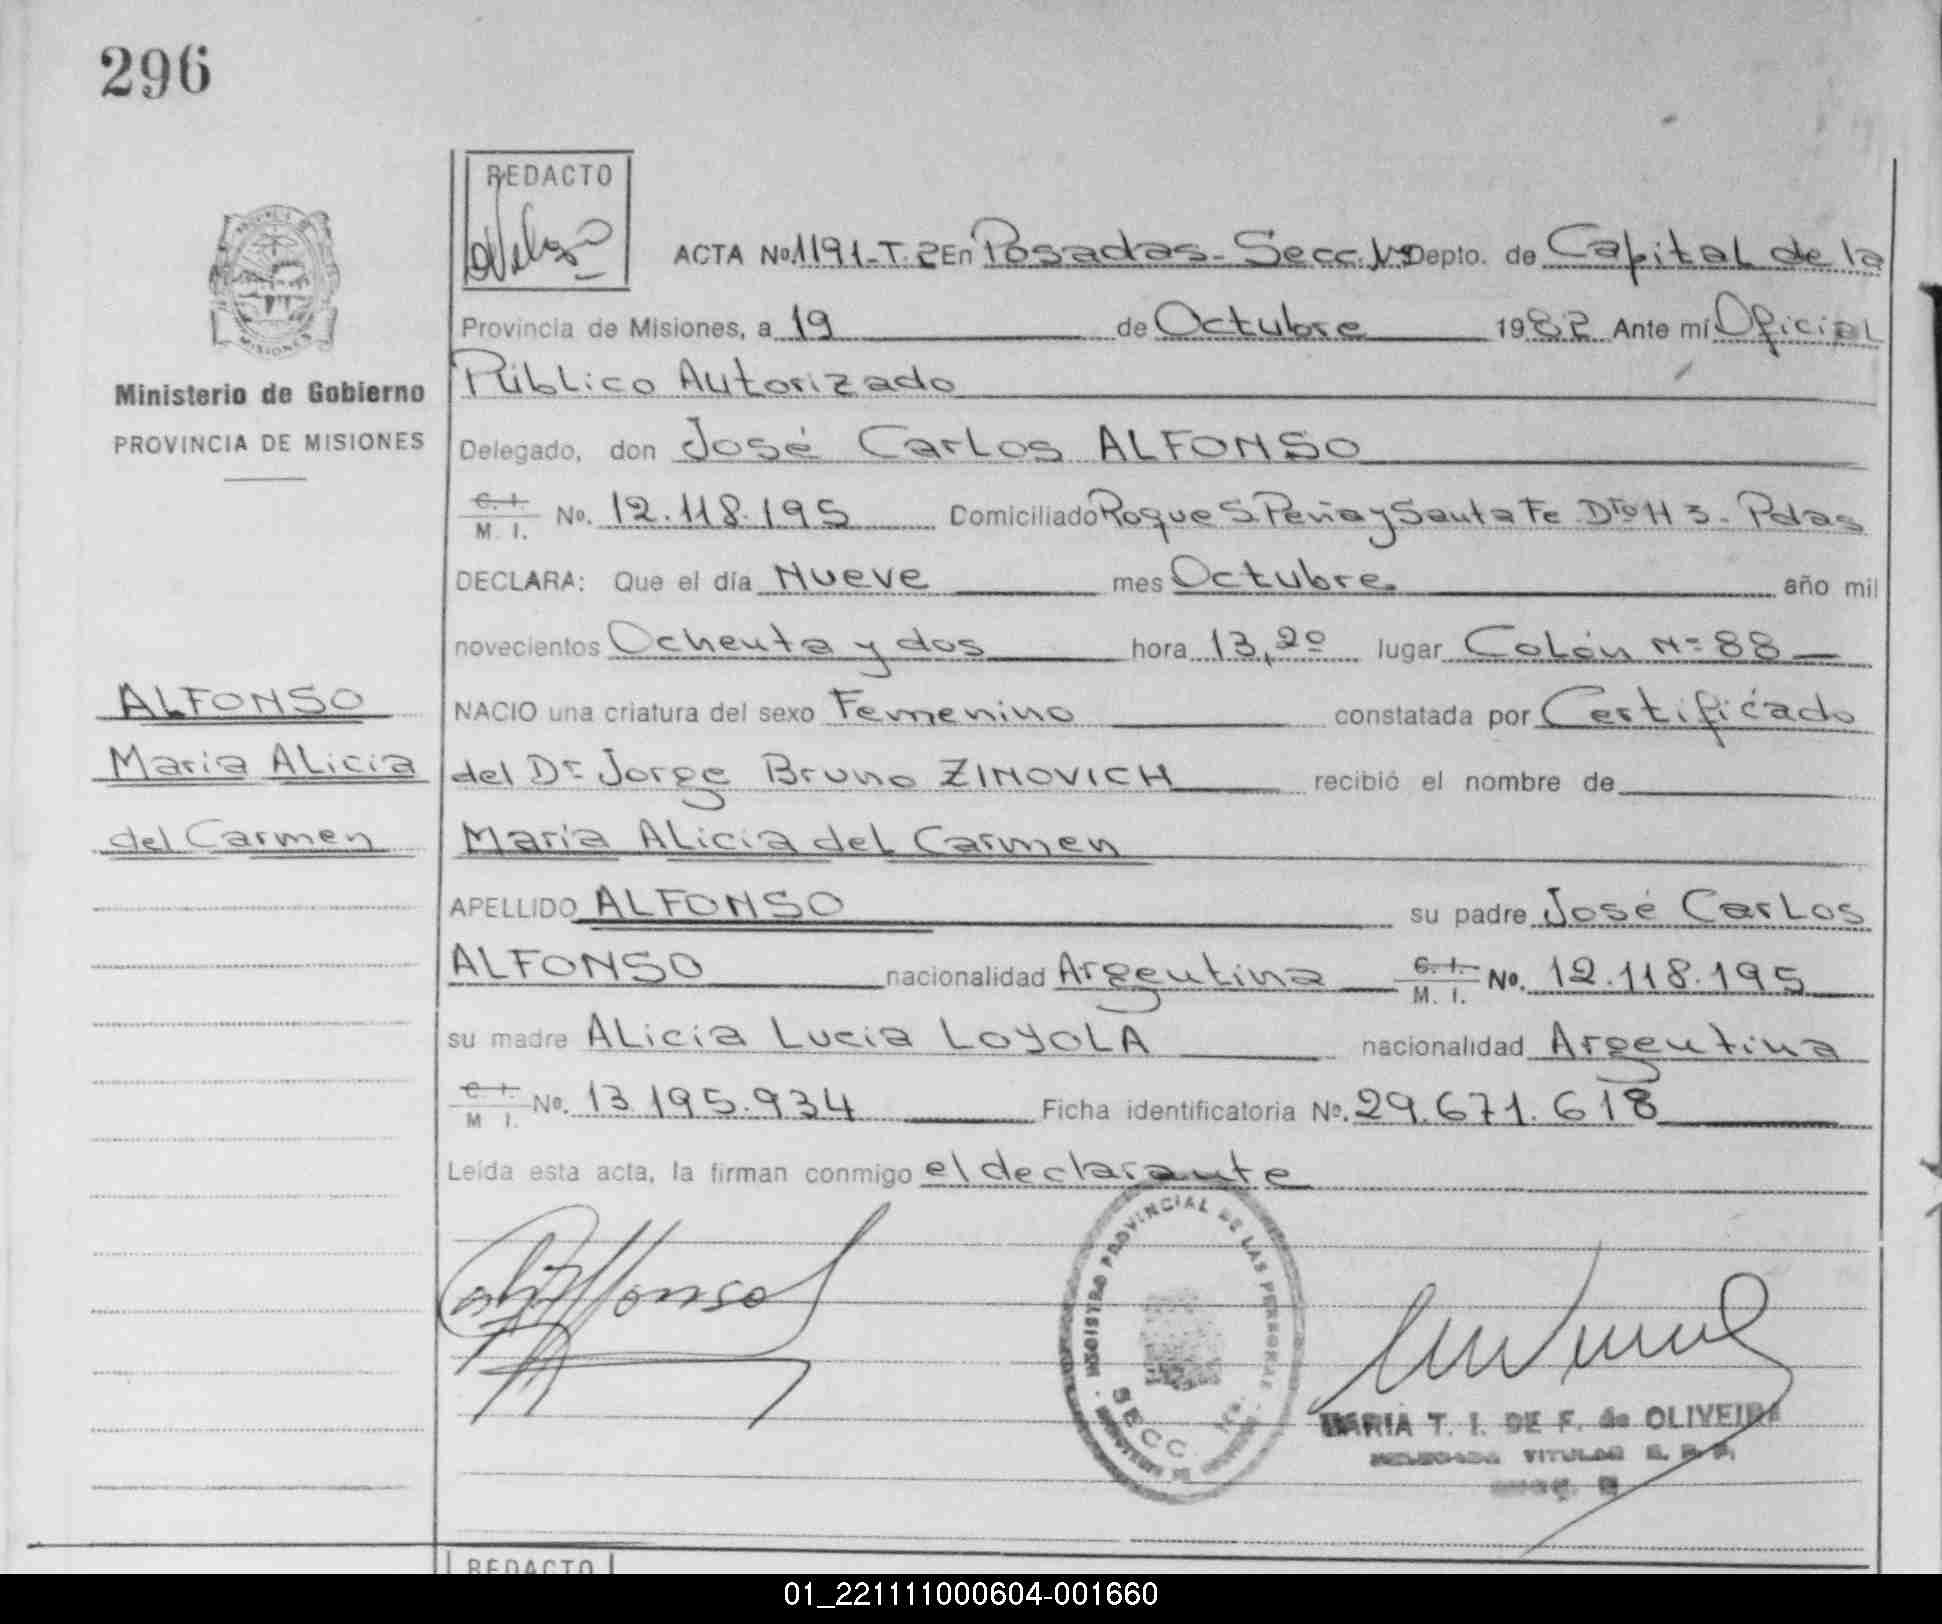 296
REDACTO
ACTA No. 1191-T. 2 En Posadas - Secc. 1ª Depto. de Capital de la
Provincia de Misiones, a 19 de Octubre 1982 Ante mí Oficial
Público Autorizado
Delegado, don José Carlos ALFONSO
C. I.
M. I. No. 12.118.195 Domiciliado Roque S. Peña y Santa Fe Dto H 3 - Pdas
DECLARA: Que el día Nueve mes Octubre año mil
novecientos Ochenta y dos hora 13,20 lugar Colón Nº 88
NACIO una criatura del sexo Femenino constatada por Certificado
del Dr Jorge Bruno ZINOVICH recibió el nombre de
María Alicia del Carmen
APELLIDO ALFONSO su padre José Carlos
ALFONSO nacionalidad Argentina C. I. M. I. No. 12.118.195
su madre Alicia Lucia LOYOLA nacionalidad Argentina
C. I.
M. I. No. 13.195.934 Ficha identificatoria No. 29.671.618
Leída esta acta, la firman conmigo el declarante
MISIONES
Ministerio de Gobierno
PROVINCIA DE MISIONES
ALFONSO
Maria Alicia
del Carmen
Alfonso
REGISTRO PROVINCIAL DE LAS PERSONAS
SECC. 1ra.
MARIA T. I. DE F. de OLIVEIRA
DELEGADA TITULAR R. P. P.
REDACTO
01_221111000604-001660